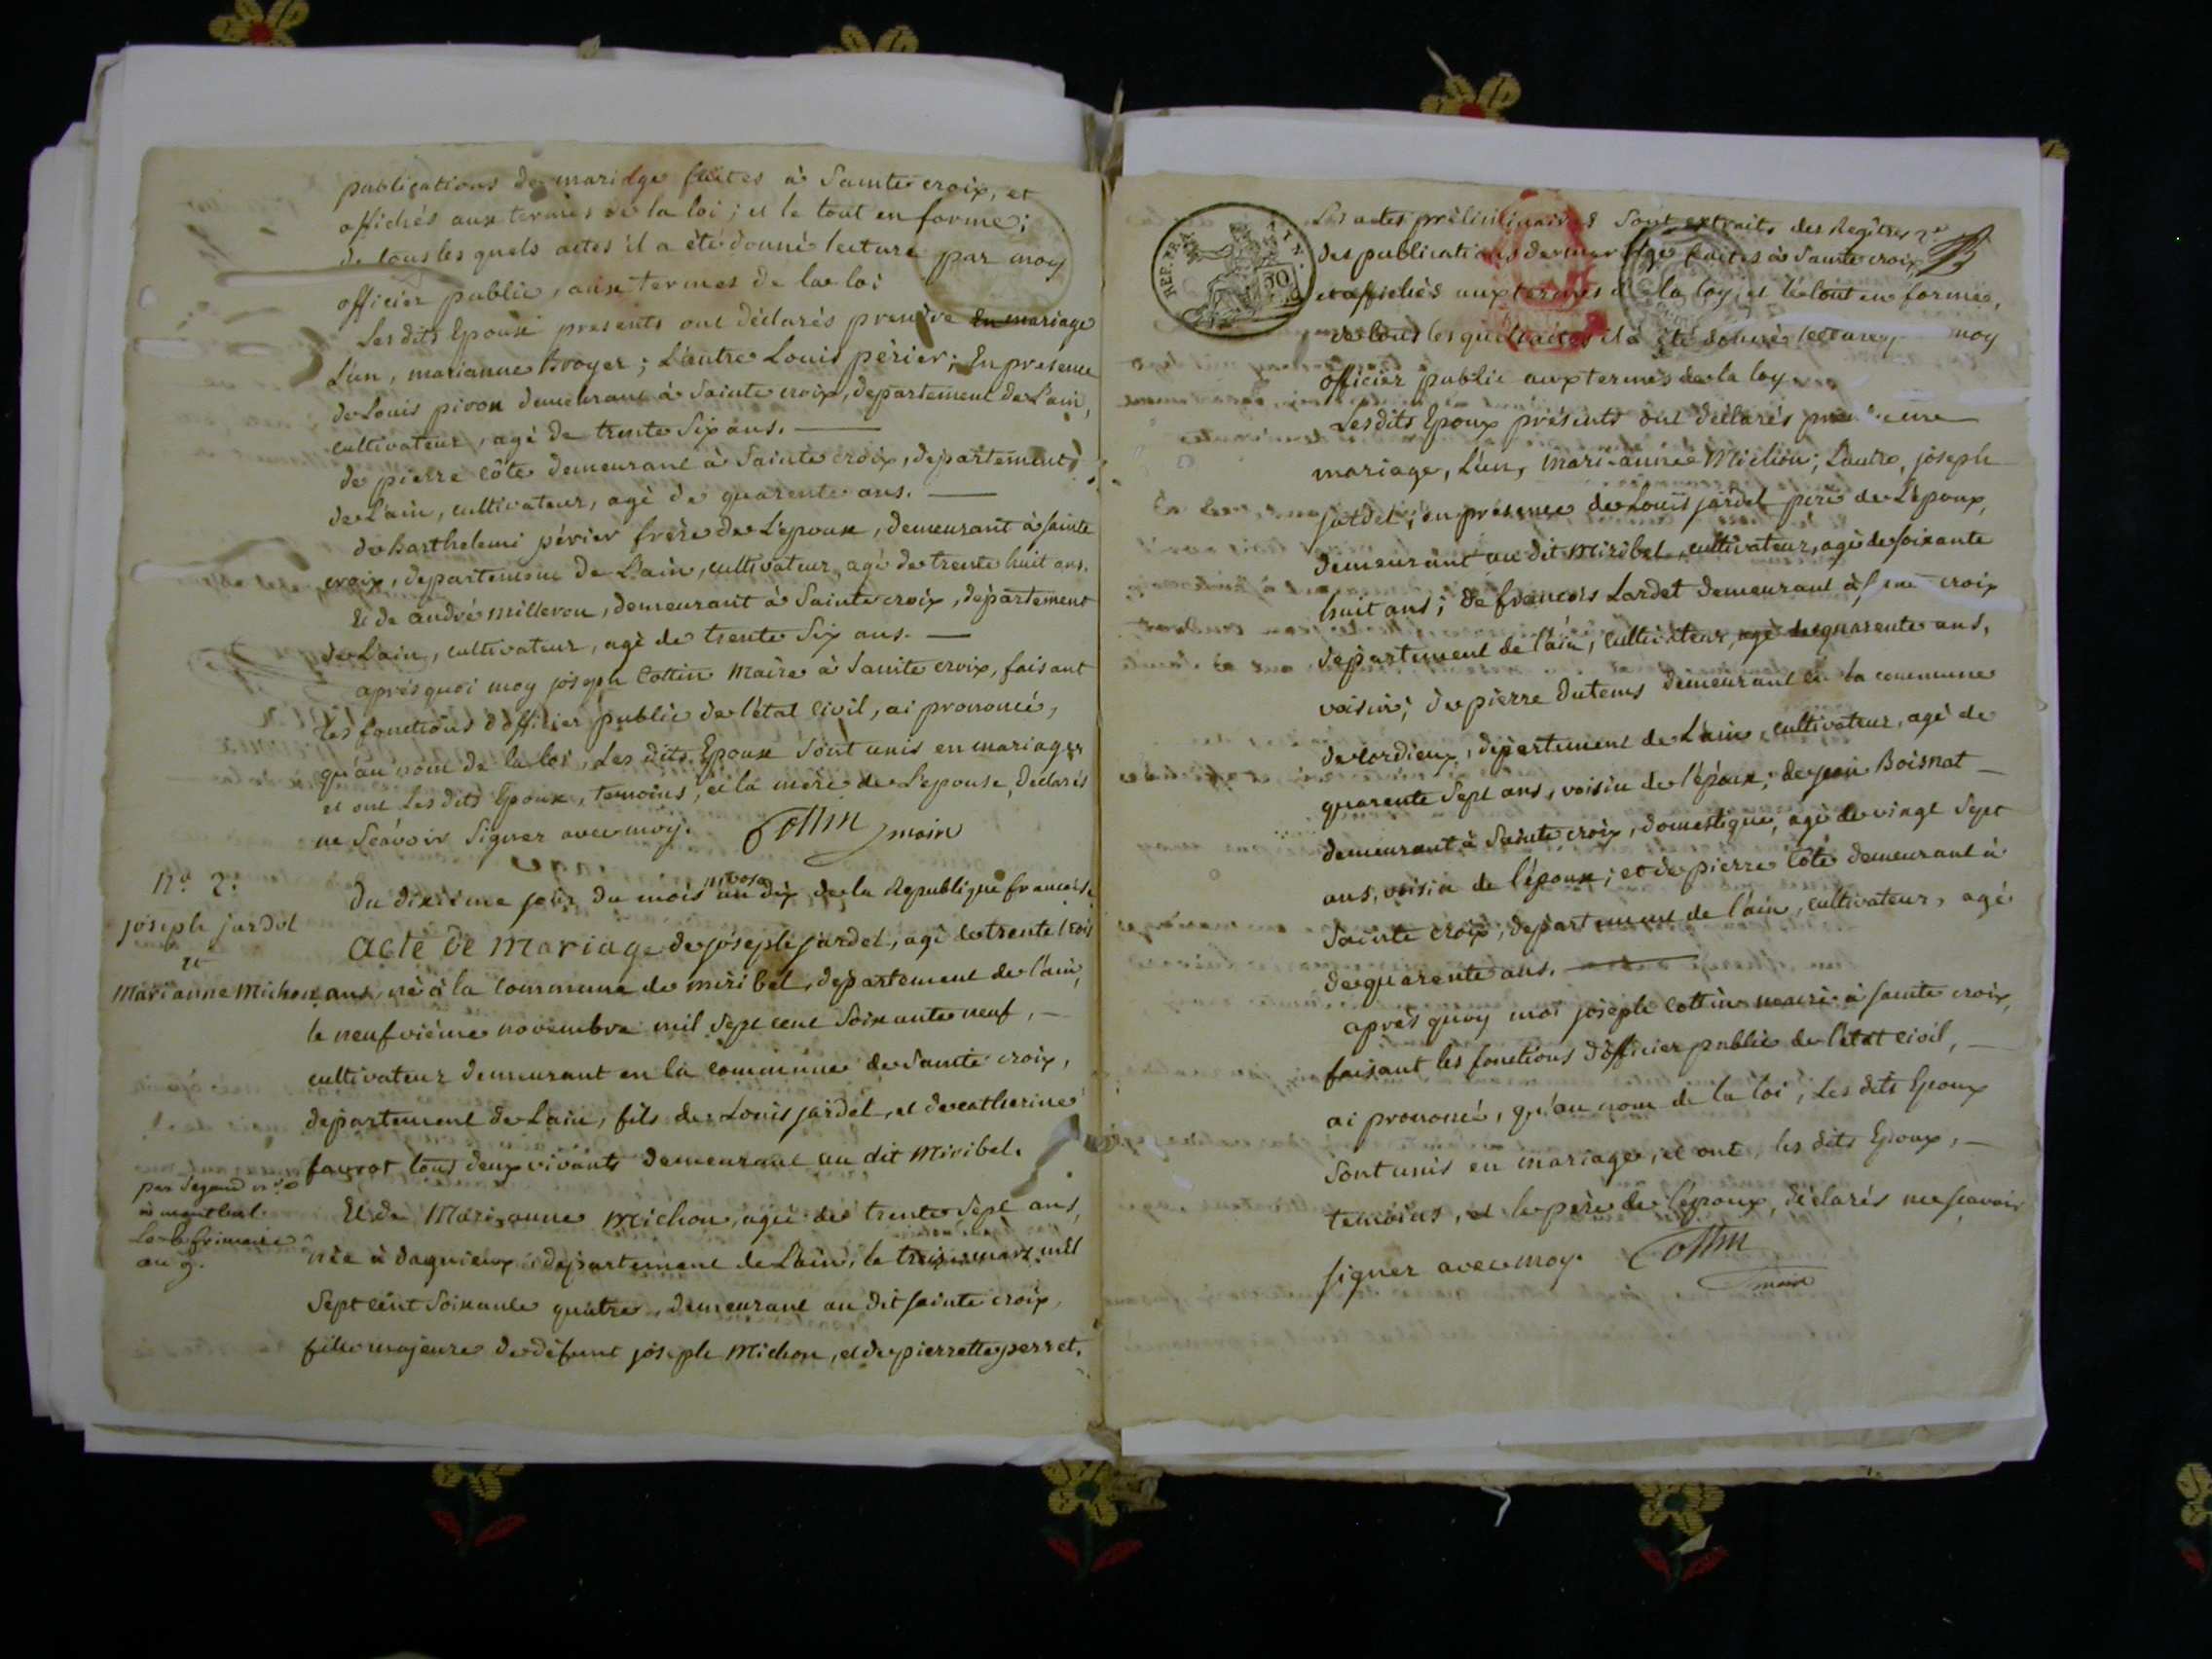 publications de mariage faites à Sainte croix, et
affichés aux termes de la loi ; et le tout en forme ;
de tous les quels actes il a été donné lecture par moy
officier public, aux termes de la loi
Les dits Epoux presents ont déclarés prendre en mariage
L'un, marianne Broyer ; L'autre Louis périer ; En presence
de Louis pivon demeurant à Sainte croix, departement de L'ain,
cultivateur, agé de trente Six ans.
de pierre côte demeurant à Sainte croix, departement
de L'ain, cultivateur, agé de quarente ans.
de barthelemi périer frère de L'epoux, demeurant à Sainte
croix, departement de L'ain, cultivateur, agé de trente huit ans.
Et de andré milleron, demeurant à Sainte croix, departement
de L'ain, cultivateur, agé de trente Six ans.
après quoi moy joseph Cottin Maire à Sainte croix, faisant
les fonctions d'officier public de l'état Civil, ai prononcé,
qu'au nom de la loi, Les dits Epoux Sont unis en mariage,
et ont Les dits Epoux, temoins, et la mère de L'epouse, Declarés
ne Sçavoir Signer avec moy. Cottin maire
N° 2.
joseph jardet
et
Marianne Michon
Du dixième jour du mois nivose an dix de la Republique francaise
Acte de Mariage de joseph jardet, agé de trente trois
ans, né à la Commune de miribel, departement de l'ain,
le neufvième novembre mil Sept cent Soixante neuf,
cultivateur demeurant en la commune de Sainte croix,
departement de Lain, fils de Louis jardet, et de catherine
fayrot tous deux vivants demeurant au dit Miribel.
par
à montluel
Le 6 frimaire
an 9.
Et de Marianne Michon, agée de trente Sept ans,
née à dagnieux departement de L'ain, le trois mars mil
Sept cent Soixante quatre, demeurant au dit Sainte croix,
fille majeure de défunt joseph Michon, et de pierrette perret.
REP. FRA.
50
Les actes préliminaires Sont extraits des Regitres
des publications de mariage faites à Sainte croix
et affichés aux termes de la loy, et le tout en forme,
de tous les quels actes il a été donné lecture moy
officier public aux termes de la loy.
Les dits Epoux présents ont déclarés
mariage, L'un, Mari-anne Michon ; L'autre, joseph
jardet ; en présence de Louis jardet père de L'époux,
demeurant au dit Miribel, cultivateur, agé de soixante
huit ans ; de francois Lardet demeurant à croix
département de l'ain, cultivateur, agé de quarente ans,
voisin ; de pierre dutems demeurant en la commune
de cordieux, département de L'ain, cultivateur, agé de
quarente Sept ans, voisin de l'époux ; de jean Boisnat
demeurant à Sainte croix, domestique, agé de vingt Sept
ans, voisin de l'époux ; et de pierre Côte demeurant à
Sainte croix, departement de l'ain, cultivateur, agé
de quarente ans.
après quoy moi joseph cottin maire à sainte croix,
faisant les fonctions d'officier public de l'état civil,
ai prononcé, qu'au nom de la loi, Les dits Epoux
Sont unis en mariage, et ont, les dits Epoux,
temoins, et le père de l'époux, déclarés ne sçavoir
signer avec moy. Cottin
maire